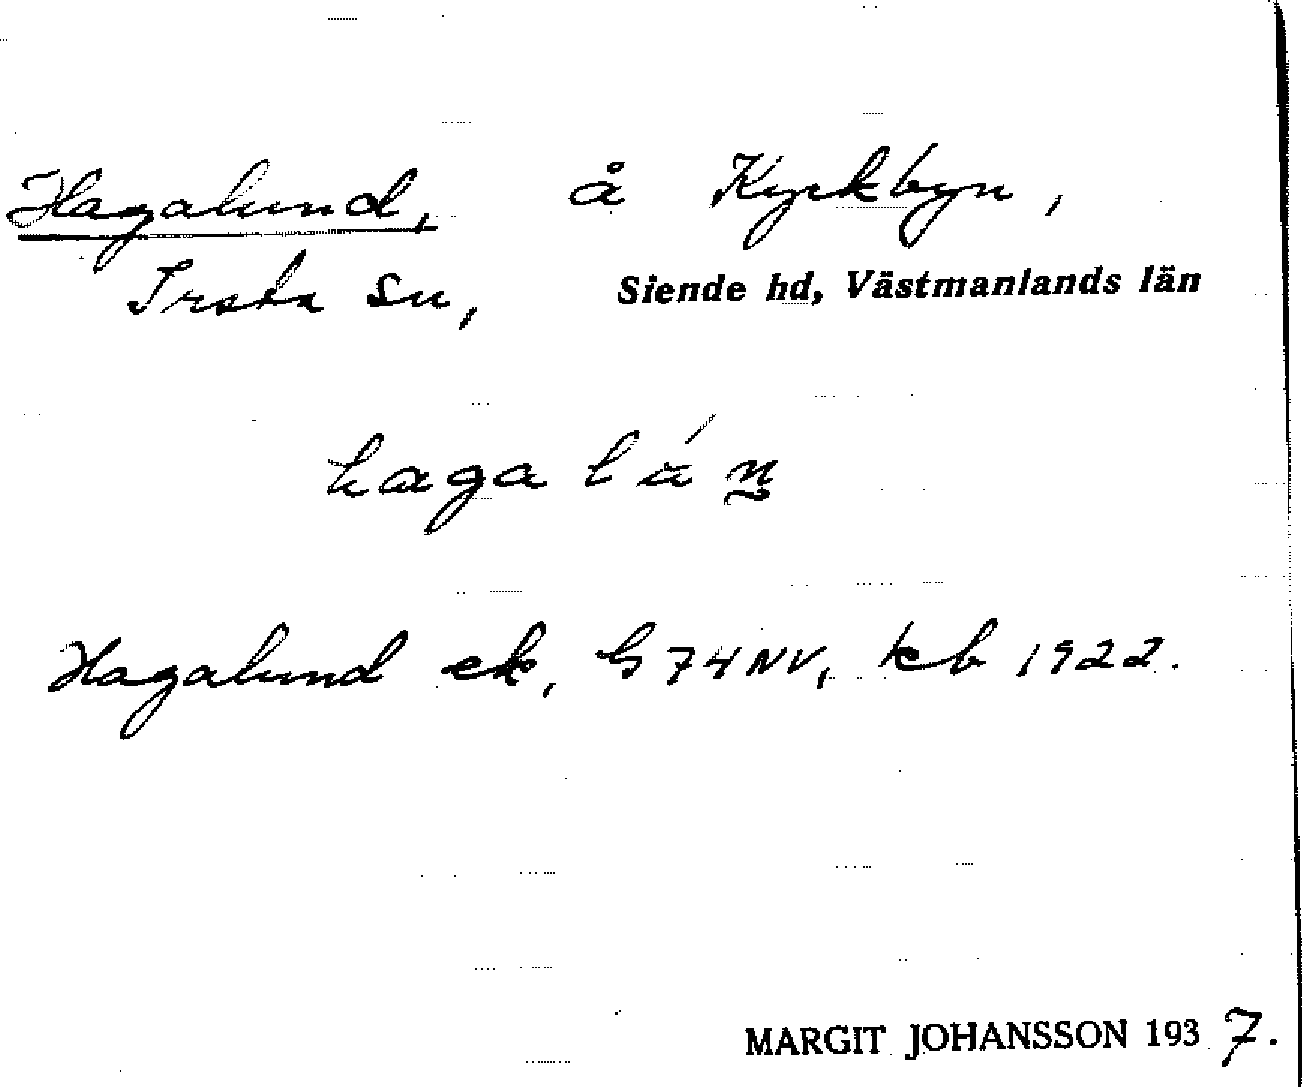 Hagalund, å Kyrkbyn,
Irsta sn, Siende hd, Västmanlands län
hagalá n̰
Hagalund ek, G74NV, kb 1922.
MARGIT JOHANSSON 1937.